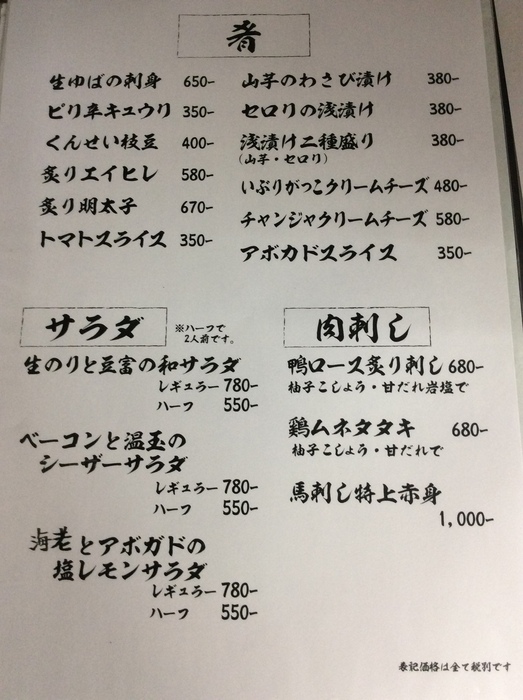 肴
生ゆばの刺身 650-
ピリ辛キュウリ 350-
くんせい枝豆 400-
炙りエイヒレ 580-
炙り明太子 670-
トマトスライス 350-
山芋のわさび漬け 380-
セロリの浅漬け 380-
浅漬け二種盛り 380-
(山芋・セロリ)
いぶりがっこクリームチーズ 480-
チャンジャクリームチーズ 580-
アボカドスライス 350-
サラダ
※ハーフで
2人前です。
生のりと豆富の和サラダ
レギュラー 780-
ハーフ 550-
ベーコンと温玉の
シーザーサラダ
レギュラー 780-
ハーフ 550-
海老とアボガドの
塩レモンサラダ
レギュラー 780-
ハーフ 550-
肉刺し
鴨ロース炙り刺し 680-
柚子こしょう・甘だれ岩塩で
鶏ムネタタキ 680-
柚子こしょう・甘だれで
馬刺し特上赤身
1,000-
表記価格は全て税別です